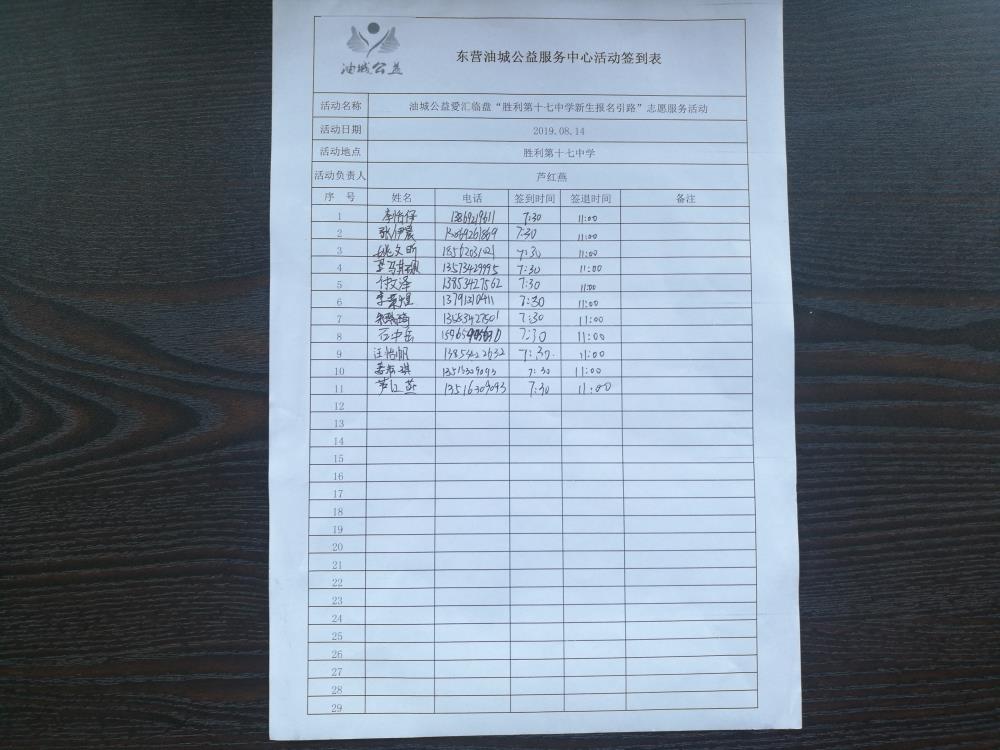 油城公益
东营油城公益服务中心活动签到表
活动名称 油城公益爱汇临盘“胜利第十七中学新生报名引路”志愿服务活动
活动日期 2019.08.14
活动地点 胜利第十七中学
活动负责人 芦红燕
序 号 姓名 电话 签到时间 签退时间 备注
1 7:30 11:00
2 7:30 11:00
3 姚文昕 7:30 11:00
4 13573429995 7:30 11:00
5 付文泽 13853427562 7:30 11:00
6 13791310411 7:30 11:00
7 13583427501 7:30 11:00
8 石中岳 7:30 11:00
9 汪怡帆 13854222632 7:30 11:00
10 13516309093 7:30 11:00
11 芦红燕 13516309093 7:30 11:00
12
13
14
15
16
17
18
19
20
21
22
23
24
25
26
27
28
29